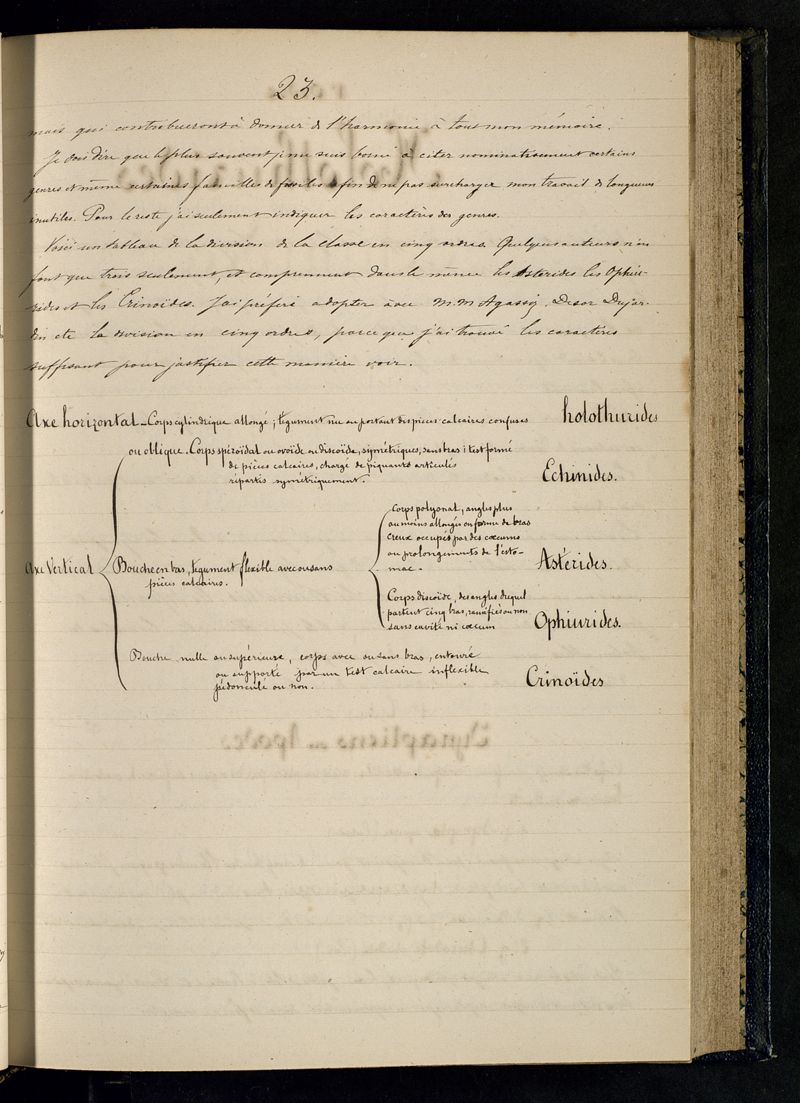 23.
mais qui contribueront à donner de l'harmonie à tout mon mémoire.
Je dois dire que le plus souvent je me suis borné à citer nominativement certains
genres et même certaines familles de fossiles afin de ne pas surcharger mon travail de longueurs
inutiles. Pour le reste j'ai seulement indiquer les caractères des genres.
Voici un tableau de la division de la classe en cinq ordres. Quelques auteurs n'en
font que trois seulement, et comprennent dans le même les Astérides les Ophiu-
rides et les Crinoïdes. J'ai préféré adopter avec M.M Agassiz, Desor Dujar-
din etc la division en cinq ordres, parce que j'ai trouvé les caractères
suffisant pour justifier cette manière voir.
Axe horizontal - Corps cylindrique allongé; tégument nu ou portant des pièces calcaires confuses holothurides
ou oblique. Corps spéroïdal ou ovoïde ou discoïde, symétriques, sans bras; test formé
de pièces calcaires, chargé de piquants articulés
répartis symétriquement. Echinides.
Axe Vertical
Bouche en bas, tégument flexible avec ou sans
pièces calcaires.
Corps polygonal, angles plus
ou moins allongés en forme de bras
creux occupés par des cœcums
ou prolongements de l'esto-
mac. Astérides.
Corps discoïde, des angles duquel
partent cinq bras, ramifiés ou non
sans cavité ni cœcum Ophiurides.
Bouche nulle ou supérieure, corps avec ou sans bras, entouré
ou supporté par un test calcaire inflexible
pédonculé ou non. Crinoïdes